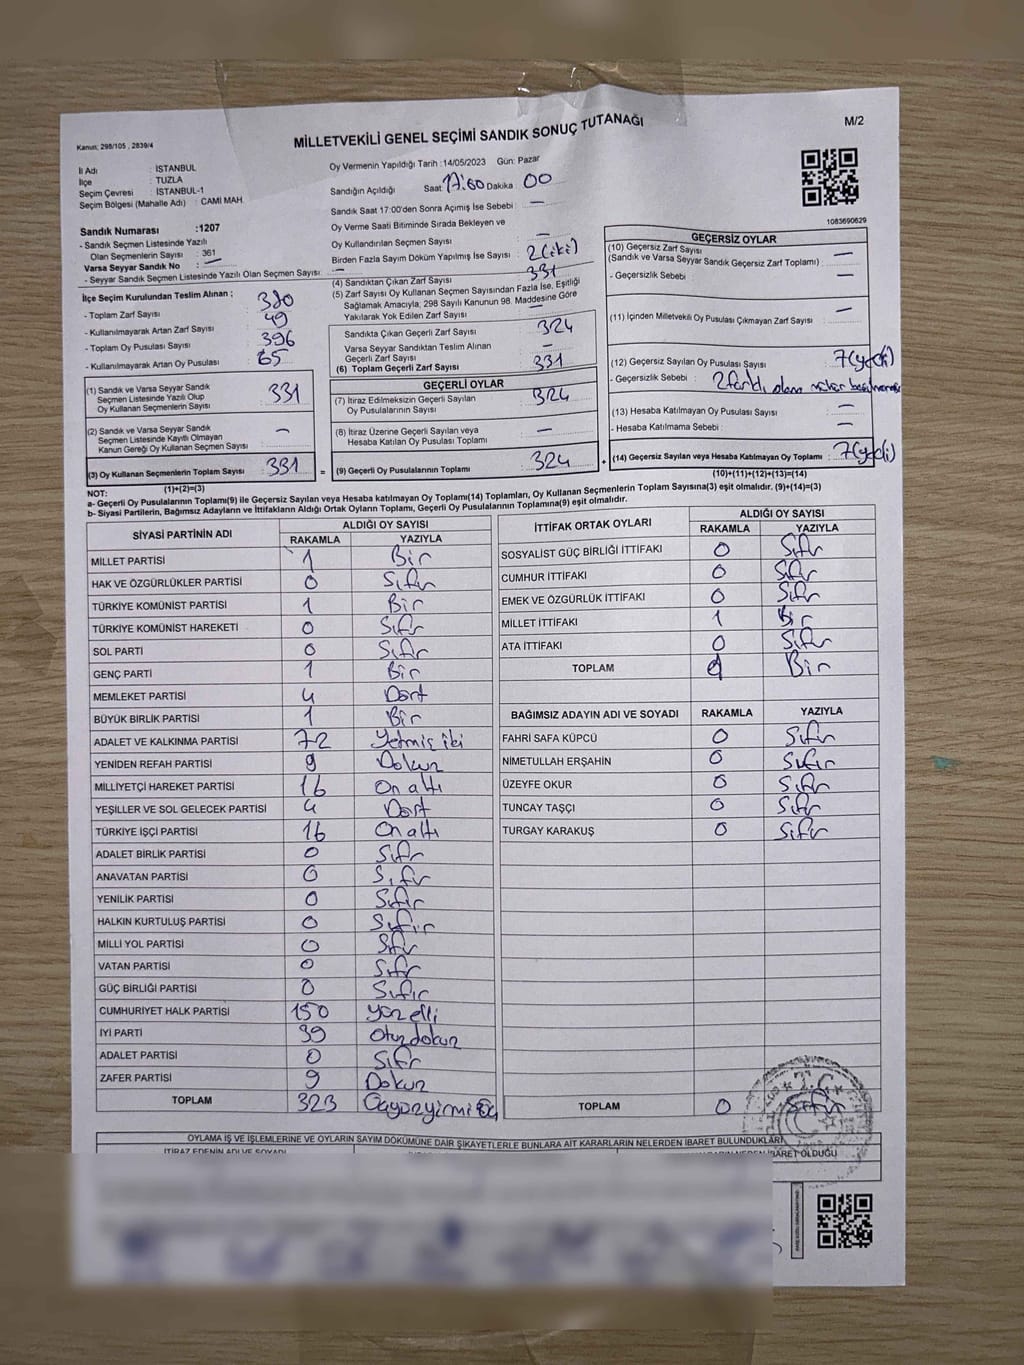 MİLLETVEKİLİ GENEL SEÇİMİ SANDIK SONUÇ TUTANAĞI
M/2
Kanun; 298/105 , 2839/4
İl Adı : İSTANBUL
İlçe : TUZLA
Seçim Çevresi : İSTANBUL-1
Seçim Bölgesi (Mahalle Adı) : CAMİ MAH.
Sandık Numarası :1207
- Sandık Seçmen Listesinde Yazılı
Olan Seçmenlerin Sayısı : 361
Varsa Seyyar Sandık No —
- Seyyar Sandık Seçmen Listesinde Yazılı Olan Seçmen Sayısı: —
Oy Vermenin Yapıldığı Tarih :14/05/2023 Gün: Pazar
Sandığın Açıldığı Saat 17:00 Dakika: 00
Sandık Saat 17:00'den Sonra Açımış İse Sebebi: —
Oy Verme Saati Bitiminde Sırada Bekleyen ve
Oy Kullandırılan Seçmen Sayısı —
Birden Fazla Sayım Döküm Yapılmış İse Sayısı: 2 (iki)
(4) Sandıktan Çıkan Zarf Sayısı 331
(5) Zarf Sayısı Oy Kullanan Seçmen Sayısından Fazla İse, Eşitliği
Sağlamak Amacıyla, 298 Sayılı Kanunun 98. Maddesine Göre
Yakılarak Yok Edilen Zarf Sayısı —
1083690629
İlçe Seçim Kurulundan Teslim Alınan ;
- Toplam Zarf Sayısı 380
- Kullanılmayarak Artan Zarf Sayısı 49
- Toplam Oy Pusulası Sayısı 396
- Kullanılmayarak Artan Oy Pusulası 65
(1) Sandık ve Varsa Seyyar Sandık
Seçmen Listesinde Yazılı Olup
Oy Kullanan Seçmenlerin Sayısı 331
(2) Sandık ve Varsa Seyyar Sandık
Seçmen Listesinde Kayıtlı Olmayan
Kanun Gereği Oy Kullanan Seçmen Sayısı —
(3) Oy Kullanan Seçmenlerin Toplam Sayısı 331 =
(1)+(2)=(3)
Sandıkta Çıkan Geçerli Zarf Sayısı 324
Varsa Seyyar Sandıktan Teslim Alınan
Geçerli Zarf Sayısı —
(6) Toplam Geçerli Zarf Sayısı 331
GEÇERLİ OYLAR
(7) İtiraz Edilmeksizin Geçerli Sayılan
Oy Pusulalarının Sayısı 324
(8) İtiraz Üzerine Geçerli Sayılan veya
Hesaba Katılan Oy Pusulası Toplamı —
(9) Geçerli Oy Pusulalarının Toplamı 324 +
GEÇERSİZ OYLAR
(10) Geçersiz Zarf Sayısı
(Sandık ve Varsa Seyyar Sandık Geçersiz Zarf Toplamı) : —
- Geçersizlik Sebebi : —
(11) İçinden Milletvekili Oy Pusulası Çıkmayan Zarf Sayısı : —
(12) Geçersiz Sayılan Oy Pusulası Sayısı : 7 (yedi)
- Geçersizlik Sebebi : 2 farklı alana
(13) Hesaba Katılmayan Oy Pusulası Sayısı : —
- Hesaba Katılmama Sebebi : —
(14) Geçersiz Sayılan veya Hesaba Katılmayan Oy Toplamı : 7 (yedi)
(10)+(11)+(12)+(13)=(14)
NOT:
a- Geçerli Oy Pusulalarının Toplamı(9) ile Geçersiz Sayılan veya Hesaba katılmayan Oy Toplamı(14) Toplamları, Oy Kullanan Seçmenlerin Toplam Sayısına(3) eşit olmalıdır. (9)+(14)=(3)
b- Siyasi Partilerin, Bağımsız Adayların ve İttifakların Aldığı Ortak Oyların Toplamı, Geçerli Oy Pusulalarının Toplamına(9) eşit olmalıdır.
SİYASİ PARTİNİN ADI ALDIĞI OY SAYISI
RAKAMLA YAZIYLA
MİLLET PARTİSİ 1 Bir
HAK VE ÖZGÜRLÜKLER PARTİSİ 0 Sıfır
TÜRKİYE KOMÜNİST PARTİSİ 1 Bir
TÜRKİYE KOMÜNİST HAREKETİ 0 Sıfır
SOL PARTİ 0 Sıfır
GENÇ PARTİ 1 Bir
MEMLEKET PARTİSİ 4 Dört
BÜYÜK BİRLİK PARTİSİ 1 Bir
ADALET VE KALKINMA PARTİSİ 72 Yetmiş iki
YENİDEN REFAH PARTİSİ 9 Dokuz
MİLLİYETÇİ HAREKET PARTİSİ 16 On altı
YEŞİLLER VE SOL GELECEK PARTİSİ 4 Dört
TÜRKİYE İŞÇİ PARTİSİ 16 On altı
ADALET BİRLİK PARTİSİ 0 Sıfır
ANAVATAN PARTİSİ 0 Sıfır
YENİLİK PARTİSİ 0 Sıfır
HALKIN KURTULUŞ PARTİSİ 0 Sıfır
MİLLİ YOL PARTİSİ 0 Sıfır
VATAN PARTİSİ 0 Sıfır
GÜÇ BİRLİĞİ PARTİSİ 0 Sıfır
CUMHURİYET HALK PARTİSİ 150 Yüz elli
İYİ PARTİ 39 Otuz dokuz
ADALET PARTİSİ 0 Sıfır
ZAFER PARTİSİ 9 Dokuz
TOPLAM 323 Üçyüzyirmi üç
İTTİFAK ORTAK OYLARI ALDIĞI OY SAYISI
RAKAMLA YAZIYLA
SOSYALİST GÜÇ BİRLİĞİ İTTİFAKI 0 Sıfır
CUMHUR İTTİFAKI 0 Sıfır
EMEK VE ÖZGÜRLÜK İTTİFAKI 0 Sıfır
MİLLET İTTİFAKI 1 Bir
ATA İTTİFAKI 0 Sıfır
TOPLAM 1 Bir
BAĞIMSIZ ADAYIN ADI VE SOYADI RAKAMLA YAZIYLA
FAHRİ SAFA KÜPCÜ 0 Sıfır
NİMETULLAH ERŞAHİN 0 Sıfır
ÜZEYFE OKUR 0 Sıfır
TUNCAY TAŞÇI 0 Sıfır
TURGAY KARAKUŞ 0 Sıfır
TOPLAM 0 Sıfır
OYLAMA İŞ VE İŞLEMLERİNE VE OYLARIN SAYIM DÖKÜMÜNE DAİR ŞİKAYETLERLE BUNLARA AİT KARARLARIN NELERDEN İBARET BULUNDUKLARI
İTİRAZ EDENİN ADI VE SOYADI
İBARET OLDUĞU